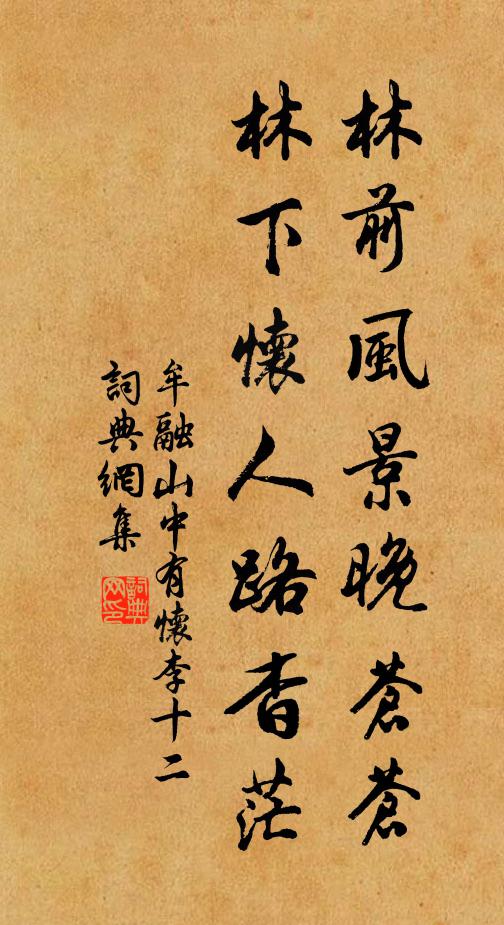 林前風景晚蒼蒼
林下懷人路杳茫
牟融山中有懷李十二
詞典網集
詞典网印